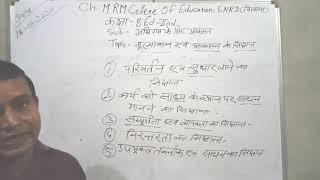 Date
Ch. MRM College Of Education SNRD(
कक्षा:- B.Ed-IInd
Sub:- अधिगम के लिए आकलन
Topic:- मूल्यांकन एवं आकलन के सिद्धांत
① परिवर्तन एवं सुधार लाने का सिद्धांत
② कार्य को साध्य के स्थान पर साधन मानने का सिद्धांत
③ सम्पूर्णता एवं व्यापकता का सिद्धान्त
④ निरन्तरता का सिद्धांत
⑤ उपयुक्त तकनीक एवं साधन का सिद्धांत